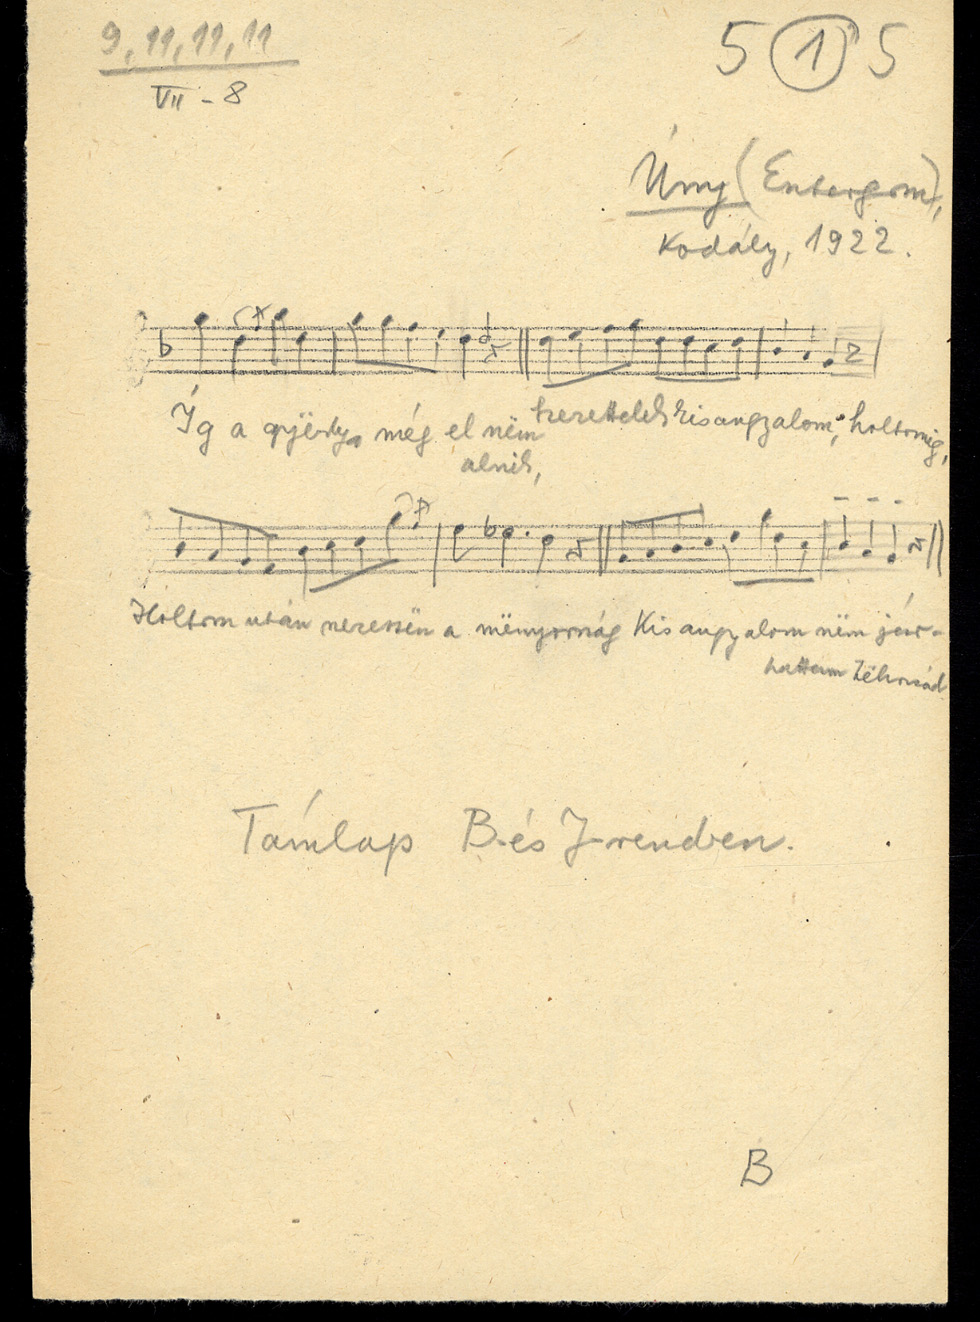 9, 11, 11, 11
VII - 8
5 (1) 5
Úny (Esztergom),
Kodály, 1922.
Ég a gyërtya, még el nëm alnik,
szerettelek kis angyalom, holtomig,
Holtom után nezessën a mënyország Kis angyalom nëm jár-
hattam
Támlap B-és J-rendben.
B